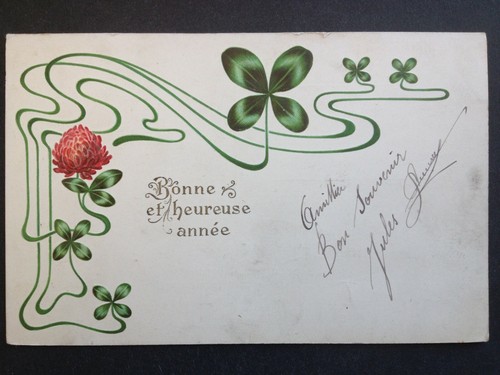 Bonne
et heureuse
année
Amitiés
Bon Souvenir
Jules